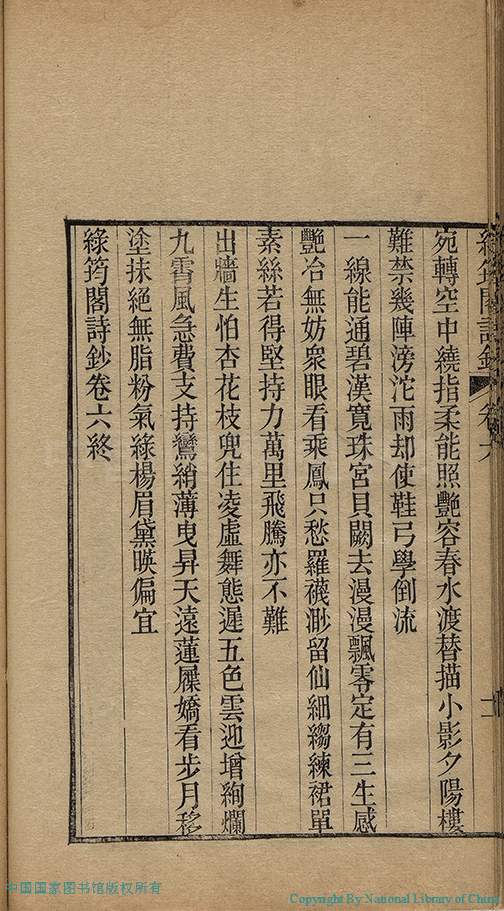 綠筠閣詩鈔 卷六
宛轉空中繞指柔能照艷容春水渡替描小影夕陽樓
難禁幾陣滂沱雨却使鞋弓學倒流
一線能通碧漢寬珠宮貝闕去漫漫飄零定有三生感
艷冶無妨衆眼看乘鳳只愁羅襪渺留仙細縐練裙單
素絲若得堅持力萬里飛騰亦不難
出牆生怕杏花枝兜住凌虛舞態遲五色雲迎增絢爛
九霄風急費支持鸞綃薄曳昇天遠蓮屧嬌看步月移
塗抹絕無脂粉氣綠楊眉黛暎偏宜
綠筠閣詩鈔卷六終
中国国家图书馆版权所有
Copyright By National Library of China